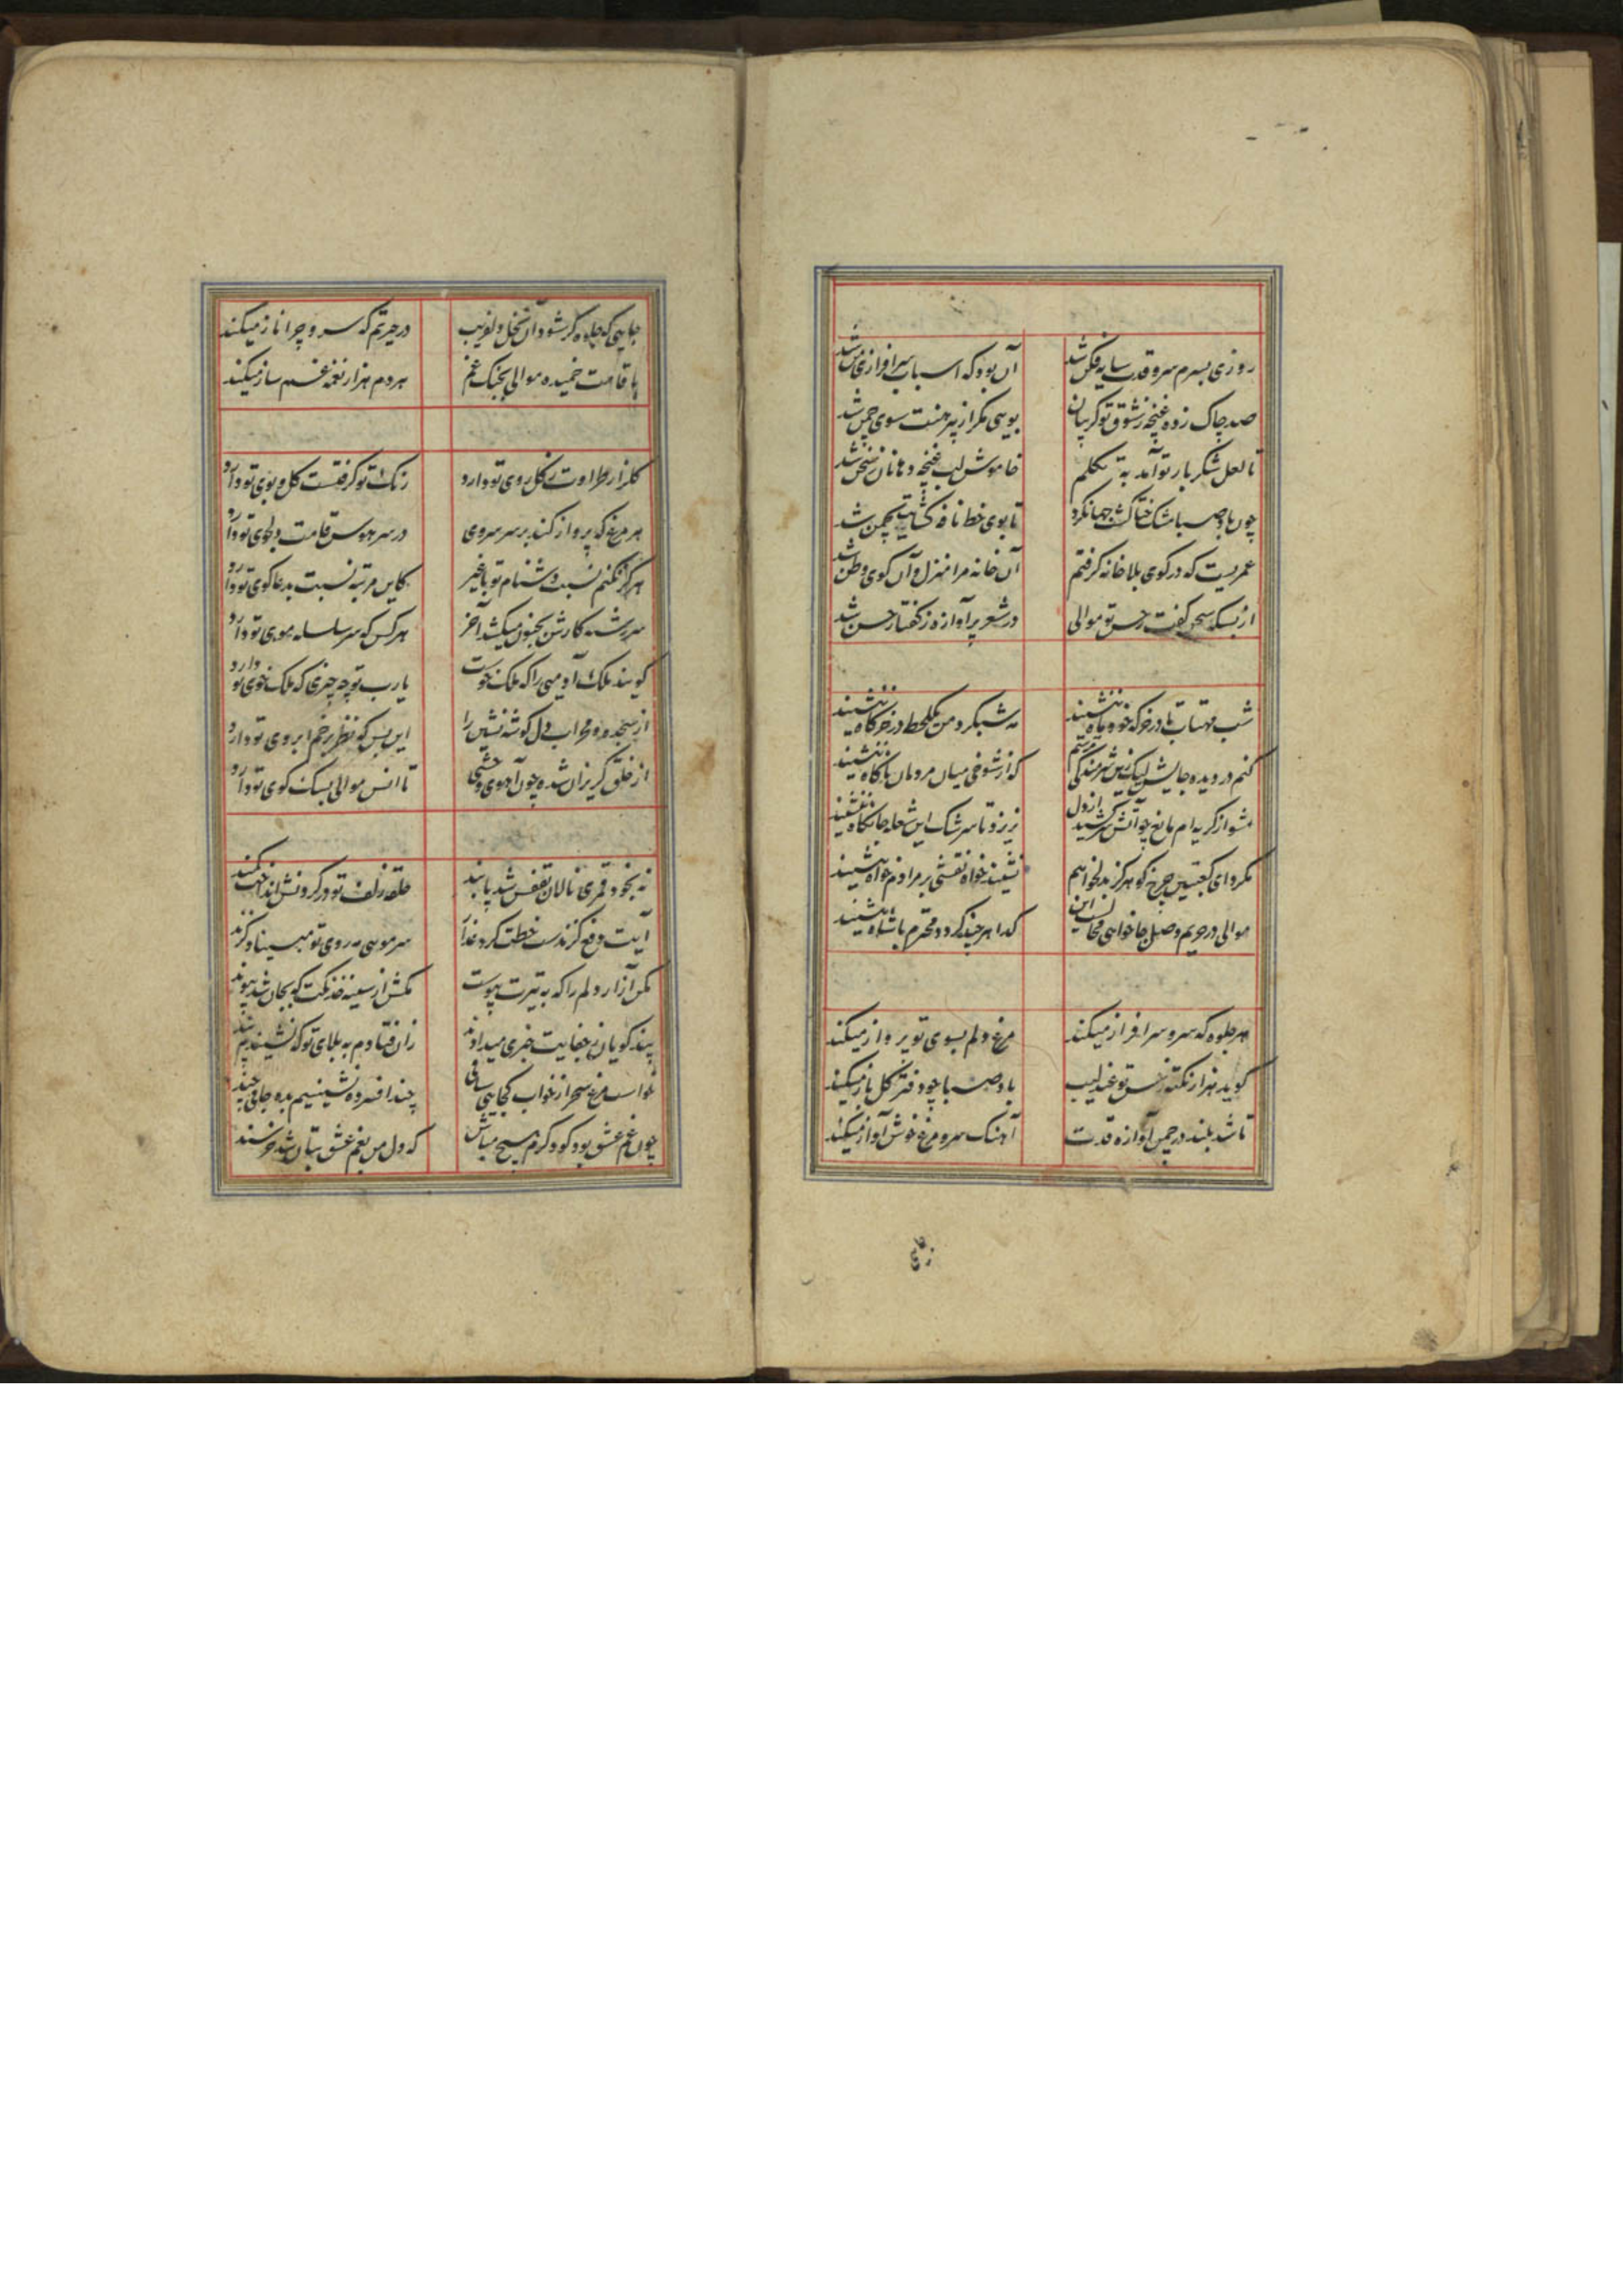 روزی بسرم سرو قدت سایه فکن شد
آن بود که اسباب سرافرازی من شد
صد چاک زده غنچه ز شوق تو گریبان
بویی مگر از پیرهنت سوی چمن شد
تا لعل شکر بار تو آمد به تکلم
خاموش لب غنچه دهانان ز سخن شد
چون باد صبا مشک ختا گشت جهانگرد
تا بوی خط نافه گشایت بچمن شد
عمریست که در کوی بلا خانه گرفتم
آن خانه مرا منزل و آن کوی وطن شد
از بسکه سخن گفت ز حسن تو موالی
در شعر پر آوازه ز گفتار حسن شد
شب مهتاب تا در خرگه خود ماه ننشیند
مه شبگرد من یکلحظه در خرگاه ننشیند
کنم در دیده جایش لیک زین شرمندگی ترسم
که از شوخی میان مردمان ناگاه ننشیند
مشو از گریه ام مانع چو آتش سر کشید از دل
نریزد تا سرشک این شعله جانکاه ننشیند
مگرد ای کعبتین چرخ کو هرگز بدلخواهم
نشیند خواه نقشی بر مرادم خواه ننشیند
موالی در حریم وصل جا خواهی محالست این
گدا هر چند گردد محترم با شاه ننشیند
هر جلوه که سرو سرافراز میکند
مرغ دلم بسوی تو پرواز میکند
گوید هزار نکته ز حسن تو عندلیب
باد صبا چو دفتر گل باز میکند
تا شد بلند در چمن آوازه قدت
آهنگ سرو مرغ خوش آواز میکند
جایی که جلوه گر شود آن نخل دلفریب
در حیرتم که سرو چرا ناز میکند
با قامت خمیده موالی بچنگ غم
هر دم هزار نغمه غم ساز میکند
گلزار طراوت ز گل روی تو دارد
رنگ تو گرفتست گل و بوی تو دارد
هر مرغ که پرواز کند بر سر سروی
در سر هوس قامت دلجوی تو دارد
هرگز نکنم نسبت دشنام تو با غیر
کاین مرتبه نسبت بدعاگوی تو دارد
سر رشته کارش بجنون میکشد آخر
هر کس که سر سلسله موی تو دارد
گویند ملک آدمیی را که ملک خوست
یا رب تو چه چیزی که ملک خوی تو دارد
از سجده و محراب دل گوشه نشین را
این بس که نظر بر خم ابروی تو دارد
از خلق گریزان شده چون آهوی وحشی
تا انس موالی بسگ کوی تو دارد
نه بخود قمری نالان بقفس شد پابند
حلقه زلف تو در گردنش انداخت کمند
آیت دفع گزندست خطت گرد عذار
سر مویی به روی تو مبیناد گزند
مکن آزار دلم را که به تیرت پیوست
مکش از سینه خدنگت که بجان شد پیوند
پند گویان ز جفایت خبری میدادند
زان فتادم به بلای تو که نشنیدم پند
خواست مرغ سحر از خواب کجایی ساقی
چند افسرده نشینیم بده جامی چند
چون غم عشق بود گو دگرم هیچ مباش
که دل من بغم عشق بتان شد خرسند